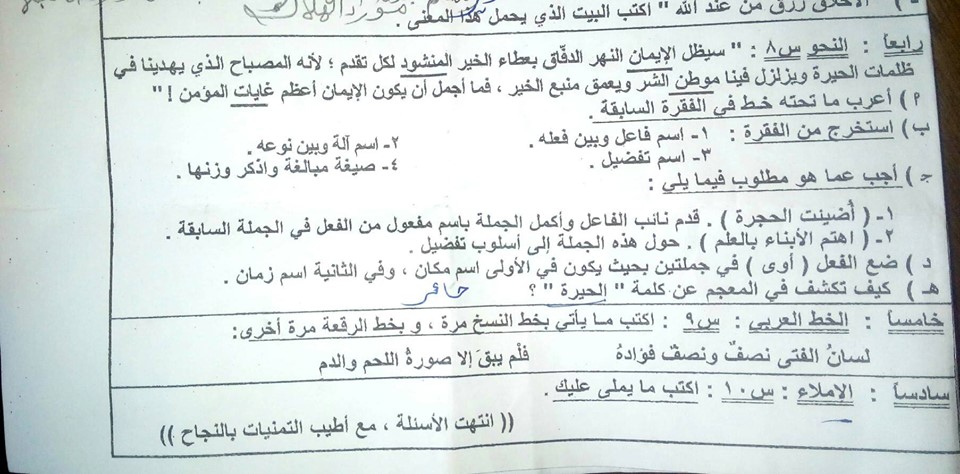 الأخلاق رزق من عند الله " اكتب البيت الذي يحمل هذا المعنى .
رابعاً : النحو س٨ : " سيظل الإيمان النهر الدفّاق بعطاء الخير المنشود لكل تقدم ؛ لأنه المصباح الذي يهدينا في
ظلمات الحيرة ويزلزل فينا موطن الشر ويعمق منبع الخير ، فما أجمل أن يكون الإيمان أعظم غايات المؤمن ! "
٢) أعرب ما تحته خط في الفقرة السابقة .
ب) استخرج من الفقرة : ١- اسم فاعل وبين فعله . ٢- اسم آلة وبين نوعه .
٣- اسم تفضيل . ٤- صيغة مبالغة واذكر وزنها .
جـ) أجب عما هو مطلوب فيما يلي :
١- ( أضيئت الحجرة ) . قدم نائب الفاعل وأكمل الجملة باسم مفعول من الفعل في الجملة السابقة .
٢- ( اهتم الأبناء بالعلم ) . حول هذه الجملة إلى أسلوب تفضيل .
د ) ضع الفعل ( أوى ) في جملتين بحيث يكون في الأولى اسم مكان ، وفي الثانية اسم زمان .
هـ ) كيف تكشف في المعجم عن كلمة " الحيرة " ؟
خامساً : الخط العربي : س٩ : اكتب ما يأتي بخط النسخ مرة ، و بخط الرقعة مرة أخرى:
لسانُ الفتى نصفٌ ونصفٌ فؤادهُ فلْم يبقَ إلا صورةُ اللحم والدم
سادساً : الإملاء : س١٠ : اكتب ما يملى عليك .
(( انتهت الأسئلة ، مع أطيب التمنيات بالنجاح ))